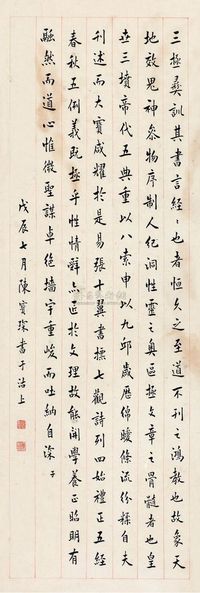 三極彝訓其書言經〻也者恒久之至道不刊之鴻教也故象天
地效鬼神參物序制人紀洞性靈之奧區極文章之骨髓者也皇
世三墳帝代五典重以八索申以九邱歲歷綿曖條流紛糅自夫
刊述而大寶咸耀於是易張十翼書標七觀詩列四始禮正五經
春秋五例義既極乎性情辭亦匠於文理故能開學養正昭明有
融然而道心惟微聖謨卓絕墻宇重峻而吐納自深 子
戊辰七月陳寶琛書于沽上